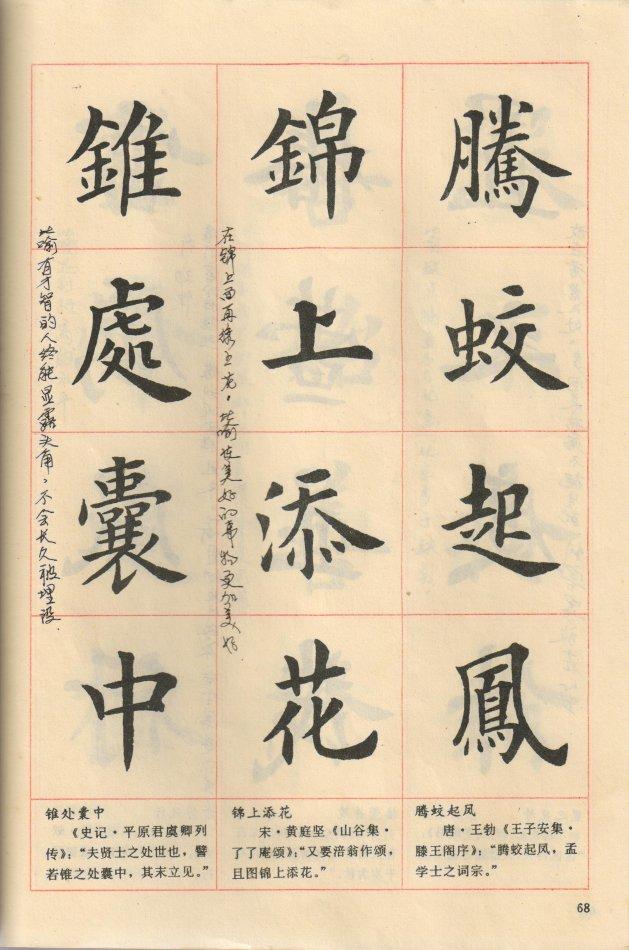 騰蛟起鳳
錦上添花
在锦上面再绣上花，比喻使美好的事物更加美好
錐處囊中
比喻有才智的人终能显露头角，不会长久被埋没
锥处囊中
《史记·平原君虞卿列
传》：“夫贤士之处世也，譬
若锥之处囊中，其末立见。”
锦上添花
宋·黄庭坚《山谷集·
了了庵颂》：“又要涪翁作颂，
且图锦上添花。”
腾蛟起凤
唐·王勃《王子安集·
滕王阁序》：“腾蛟起凤，孟
学士之词宗。”
68